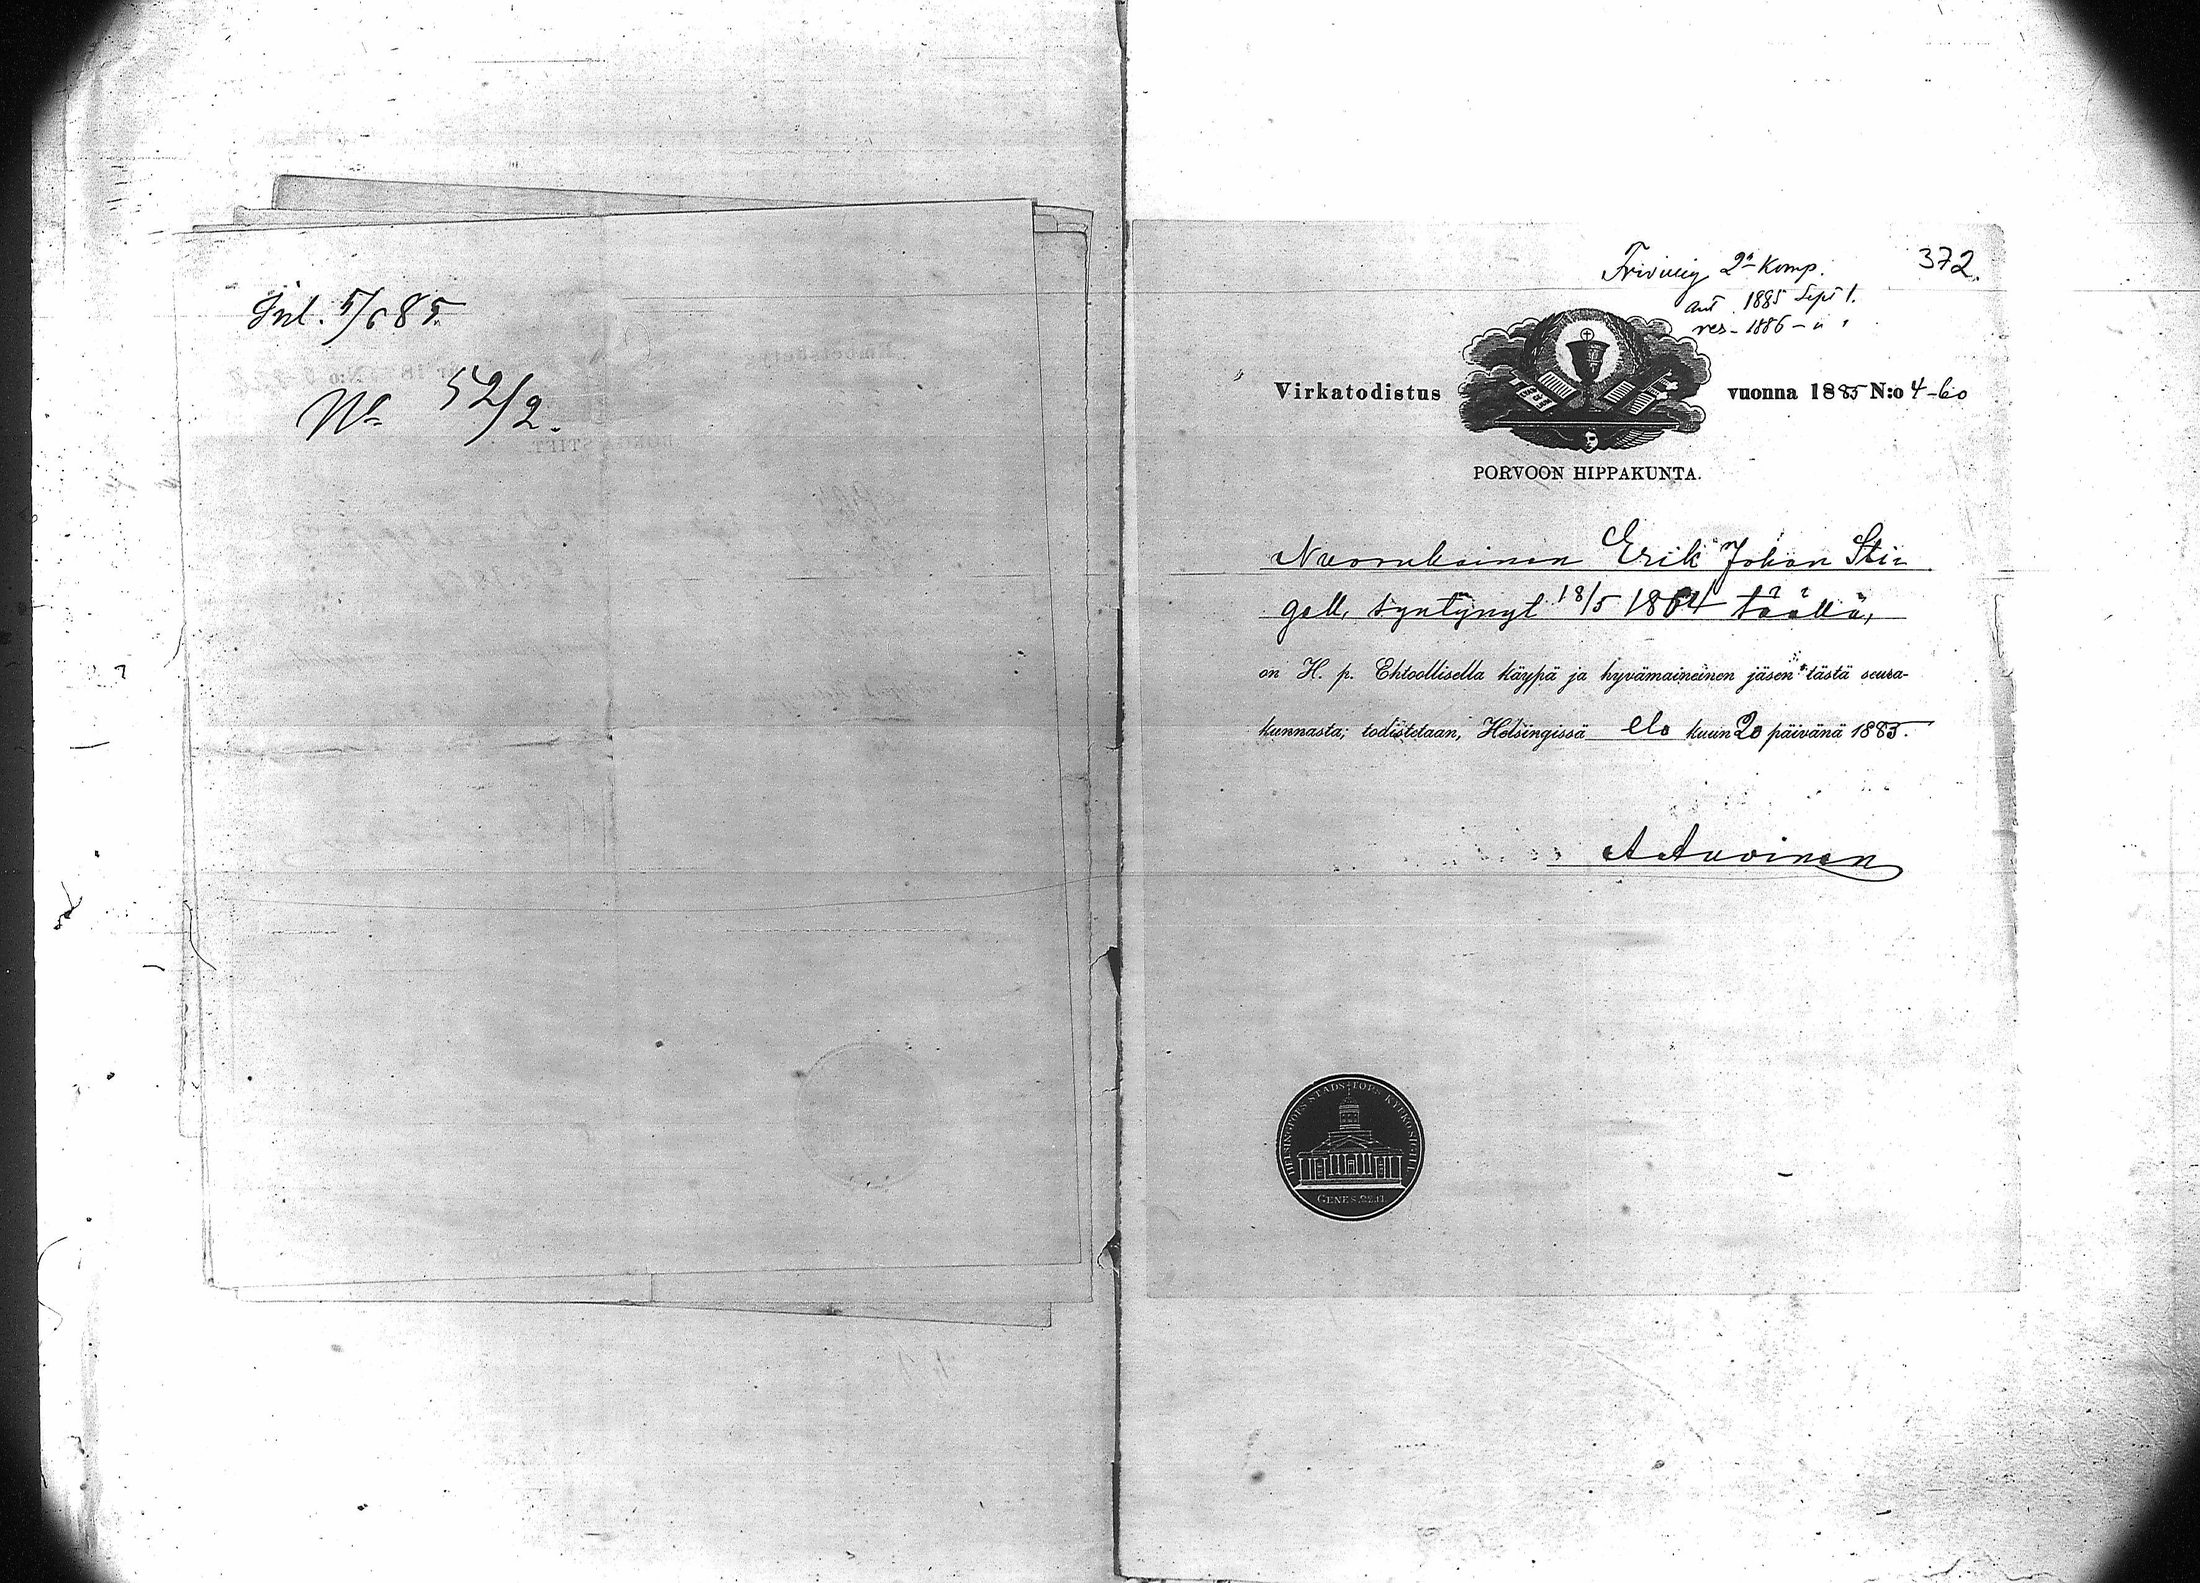 Inl. 5/6 85.
No 52/2.
372.
Frivillig 2a Komp.
ant. 1885 Sept 1.
res - 1886 - " "
Virkatodistus vuonna 1885 N:o 4-60
PORVOON HIPPAKUNTA.
Nuorukainen Erik Johan Sti-
gell, syntynyt 18/5 1864 täällä,
on H. p. Ehtoollisella käypä ja hyvämaineinen jäsen tästä seura-
kunnasta; todistetaan, Helsingissä elo kuun 20 päivänä 1885.
A Auvinen
HELSINGFORS STADS FÖRS. KYRKOSIGILL
GENES. 22.11.